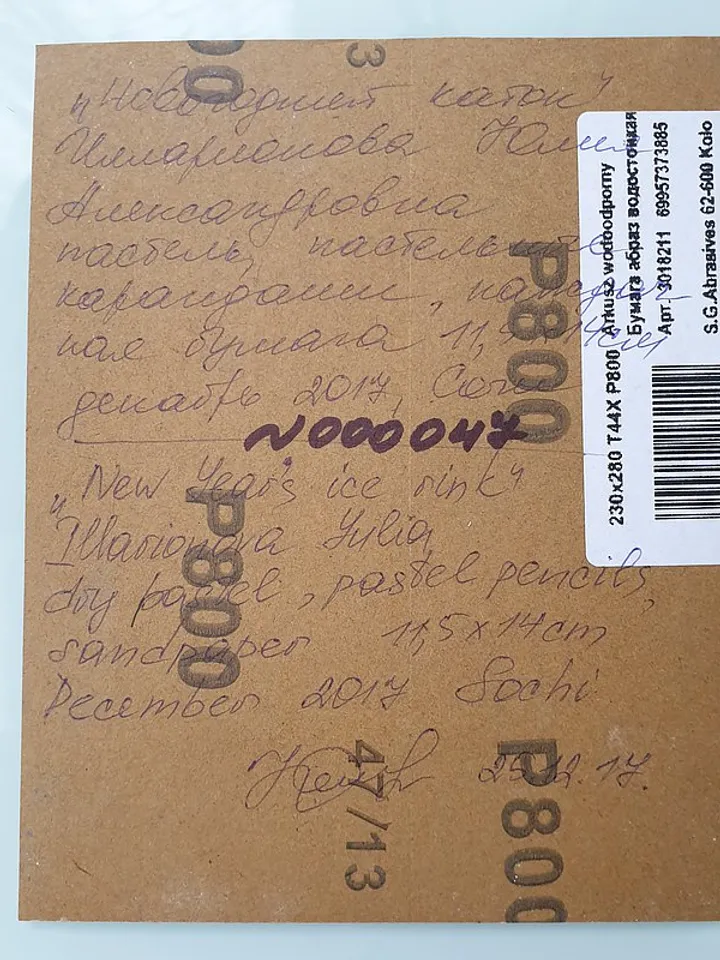 „Новогодний каток“
Илларионова Юлия
Александровна
пастель, пастельные
карандаши, наждач-
ная бумага 11,5х14см
декабрь 2017, Сочи
N000047
„New Year's ice rink“
Illarionova Yulia
dry pastel, pastel pencils,
sandpaper 11,5x14cm
December 2017 Sochi
25.12.17.
00
3
P800
P800
47/13
P800
230x280 T44X P800
Arkusz wodoodporny
Бумага абраз водостойкая
Арт. 3018211 69957373885
S.G.Abrasives 62-600 Koło